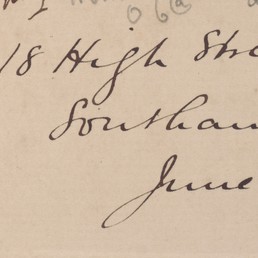 18 High Stre
Southam
June